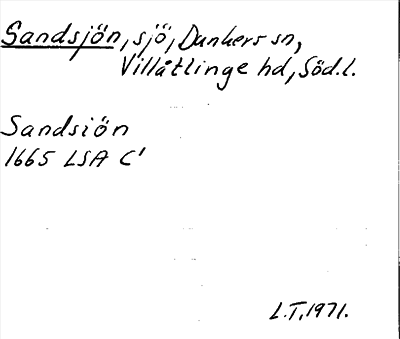 Sandsjön, sjö, Dunkers sn,
Villåtlinge hd, Söd.l.
Sandsiön
1665 LSA C'
L.T, 1971.